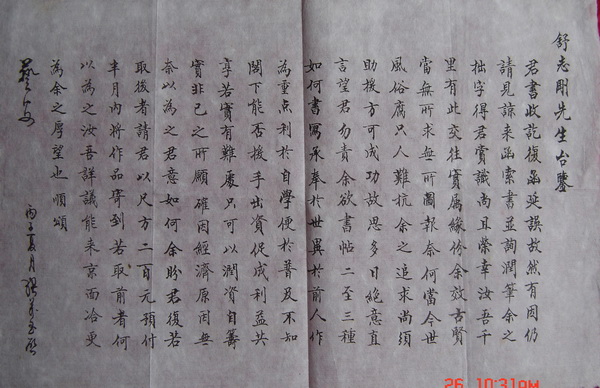 舒志剛先生台鑒
君書收訖復函延誤故然有因仍
請見諒来函索書並詢潤筆余之
拙字得君賞識尚且榮幸汝吾千
里有此交往實属緣份余效古賢
當無所求無所圖報奈何當今世
風俗腐只人難抗余之追求尚須
助援方可成功故思多日絶意直
言望君勿責余欲書帖二至三種
如何書寫承奉於世異於前人作
為重点利於自學便於普及不知
閣下能否援手出資促成利益共
享若實有難處只可以潤資自籌
實非己之所願確因經濟原因無
奈以為之君意如何余盼君復若
取後者請君以尺方二百元預付
半月內將作品寄到若取前者何
以為之汝吾詳議能来京面洽更
為余之厚望也順頌
藝安
丙子夏月
26 10:31AM